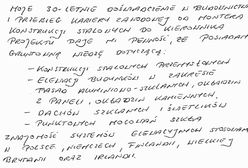 MOJE 30-LETNIE DOŚWIADCZENIE W BUDOWNICTWIE
I PRZEBIEG KARIERY ZAWODOWEJ OD MONTERA
KONSTRUKCJI STALOWYCH DO KIEROWNIKA
PROJEKTU DAJE MI PEWNOŚĆ, ŻE POSIADAM
GRUNTOWNĄ WIEDZĘ DOTYCZĄCĄ:
- KONSTRUKCJI STALOWYCH PRZEMYSŁOWYCH
- ELEWACJI BUDYNKÓW W ZAKRESIE
FASAD ALUMINIOWO-SZKLANYCH, OKŁADZIN
Z PANELI, OKŁADZIN KAMIENNYCH
- DACHÓW SZKLANYCH I ŚWIETLIKÓW
- PUNKTOWYCH MOCOWAŃ SZKŁA
ZNAJOMOŚĆ SYSTEMÓW ELEWACYJNYCH STOSOWANYCH
W POLSCE, NIEMCZECH, FINLANDII, WIELKIEJ
BRYTANII ORAZ IRLANDII.